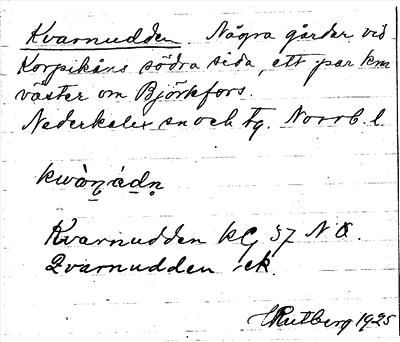 Kvarnudden. Några gårder vid
Korpikåns södra sida, ett par km
väster om Björkfors.
Nederkalix sn och tg. Norrb. l.
kwàṉ́ádṇ
Kvarnudden kG 57 NO.
Qvarnudden ek.
HRutberg 1925